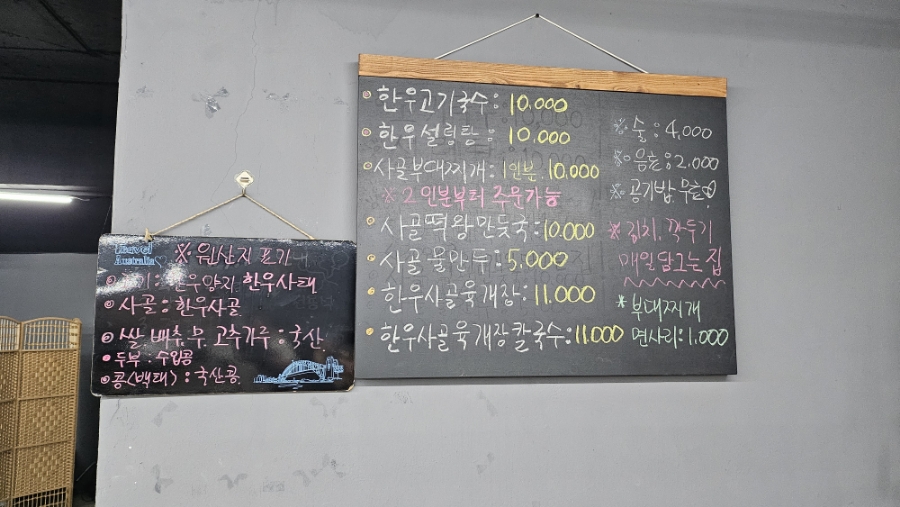 Travel
Australia
※ 원산지 표기
고기 : 한우양지 한우사태
사골 : 한우사골
쌀, 배추, 무, 고추가루 : 국산
두부 : 수입콩
콩<백태> : 국산콩
한우고기국수 : 10,000
한우설렁탕 : 10,000
사골부대찌개 : 1인분 10,000
※ 2인분부터 주문가능
사골떡왕만듓국 : 10,000
사골물만두 : 5,000
한우사골육개장 : 11.000
한우사골육개장칼국수 : 11.000
※ 술 : 4,000
※ 음료 : 2.000
※ 공기밥 무료
※ 김치, 깍두기
매일 담그는 집
* 부대찌개
면사리 : 1,000